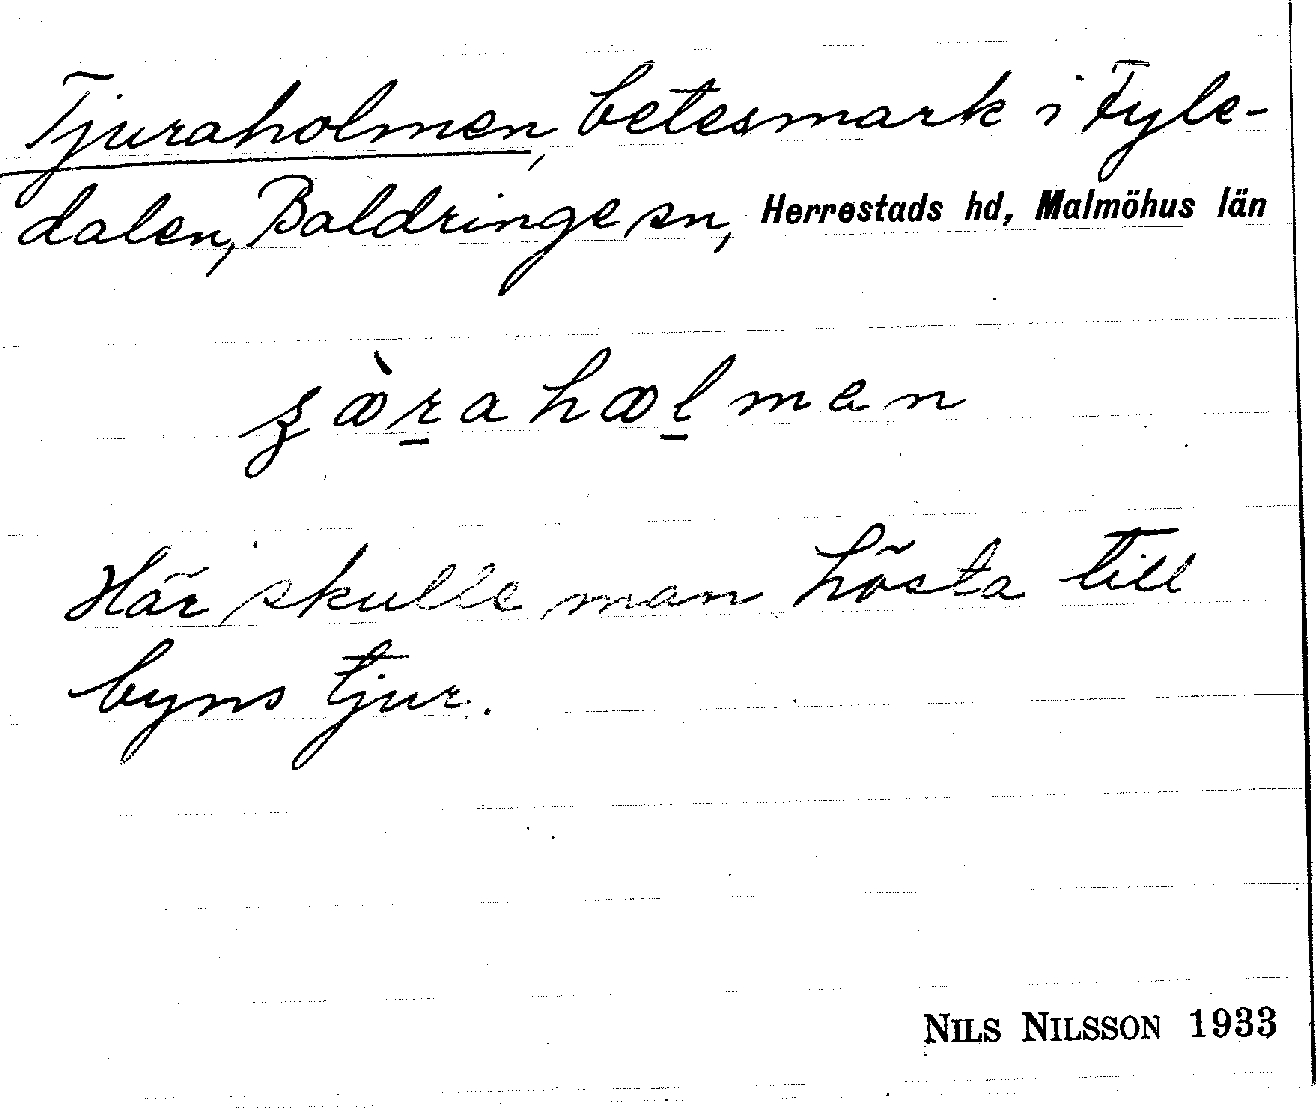 Tjuraholmen, betesmark i Fyle-
dalen, Baldringe sn, Herrestads hd, Malmöhus län
Här skulle man hösta till
byns tjur.
NILS NILSSON 1933